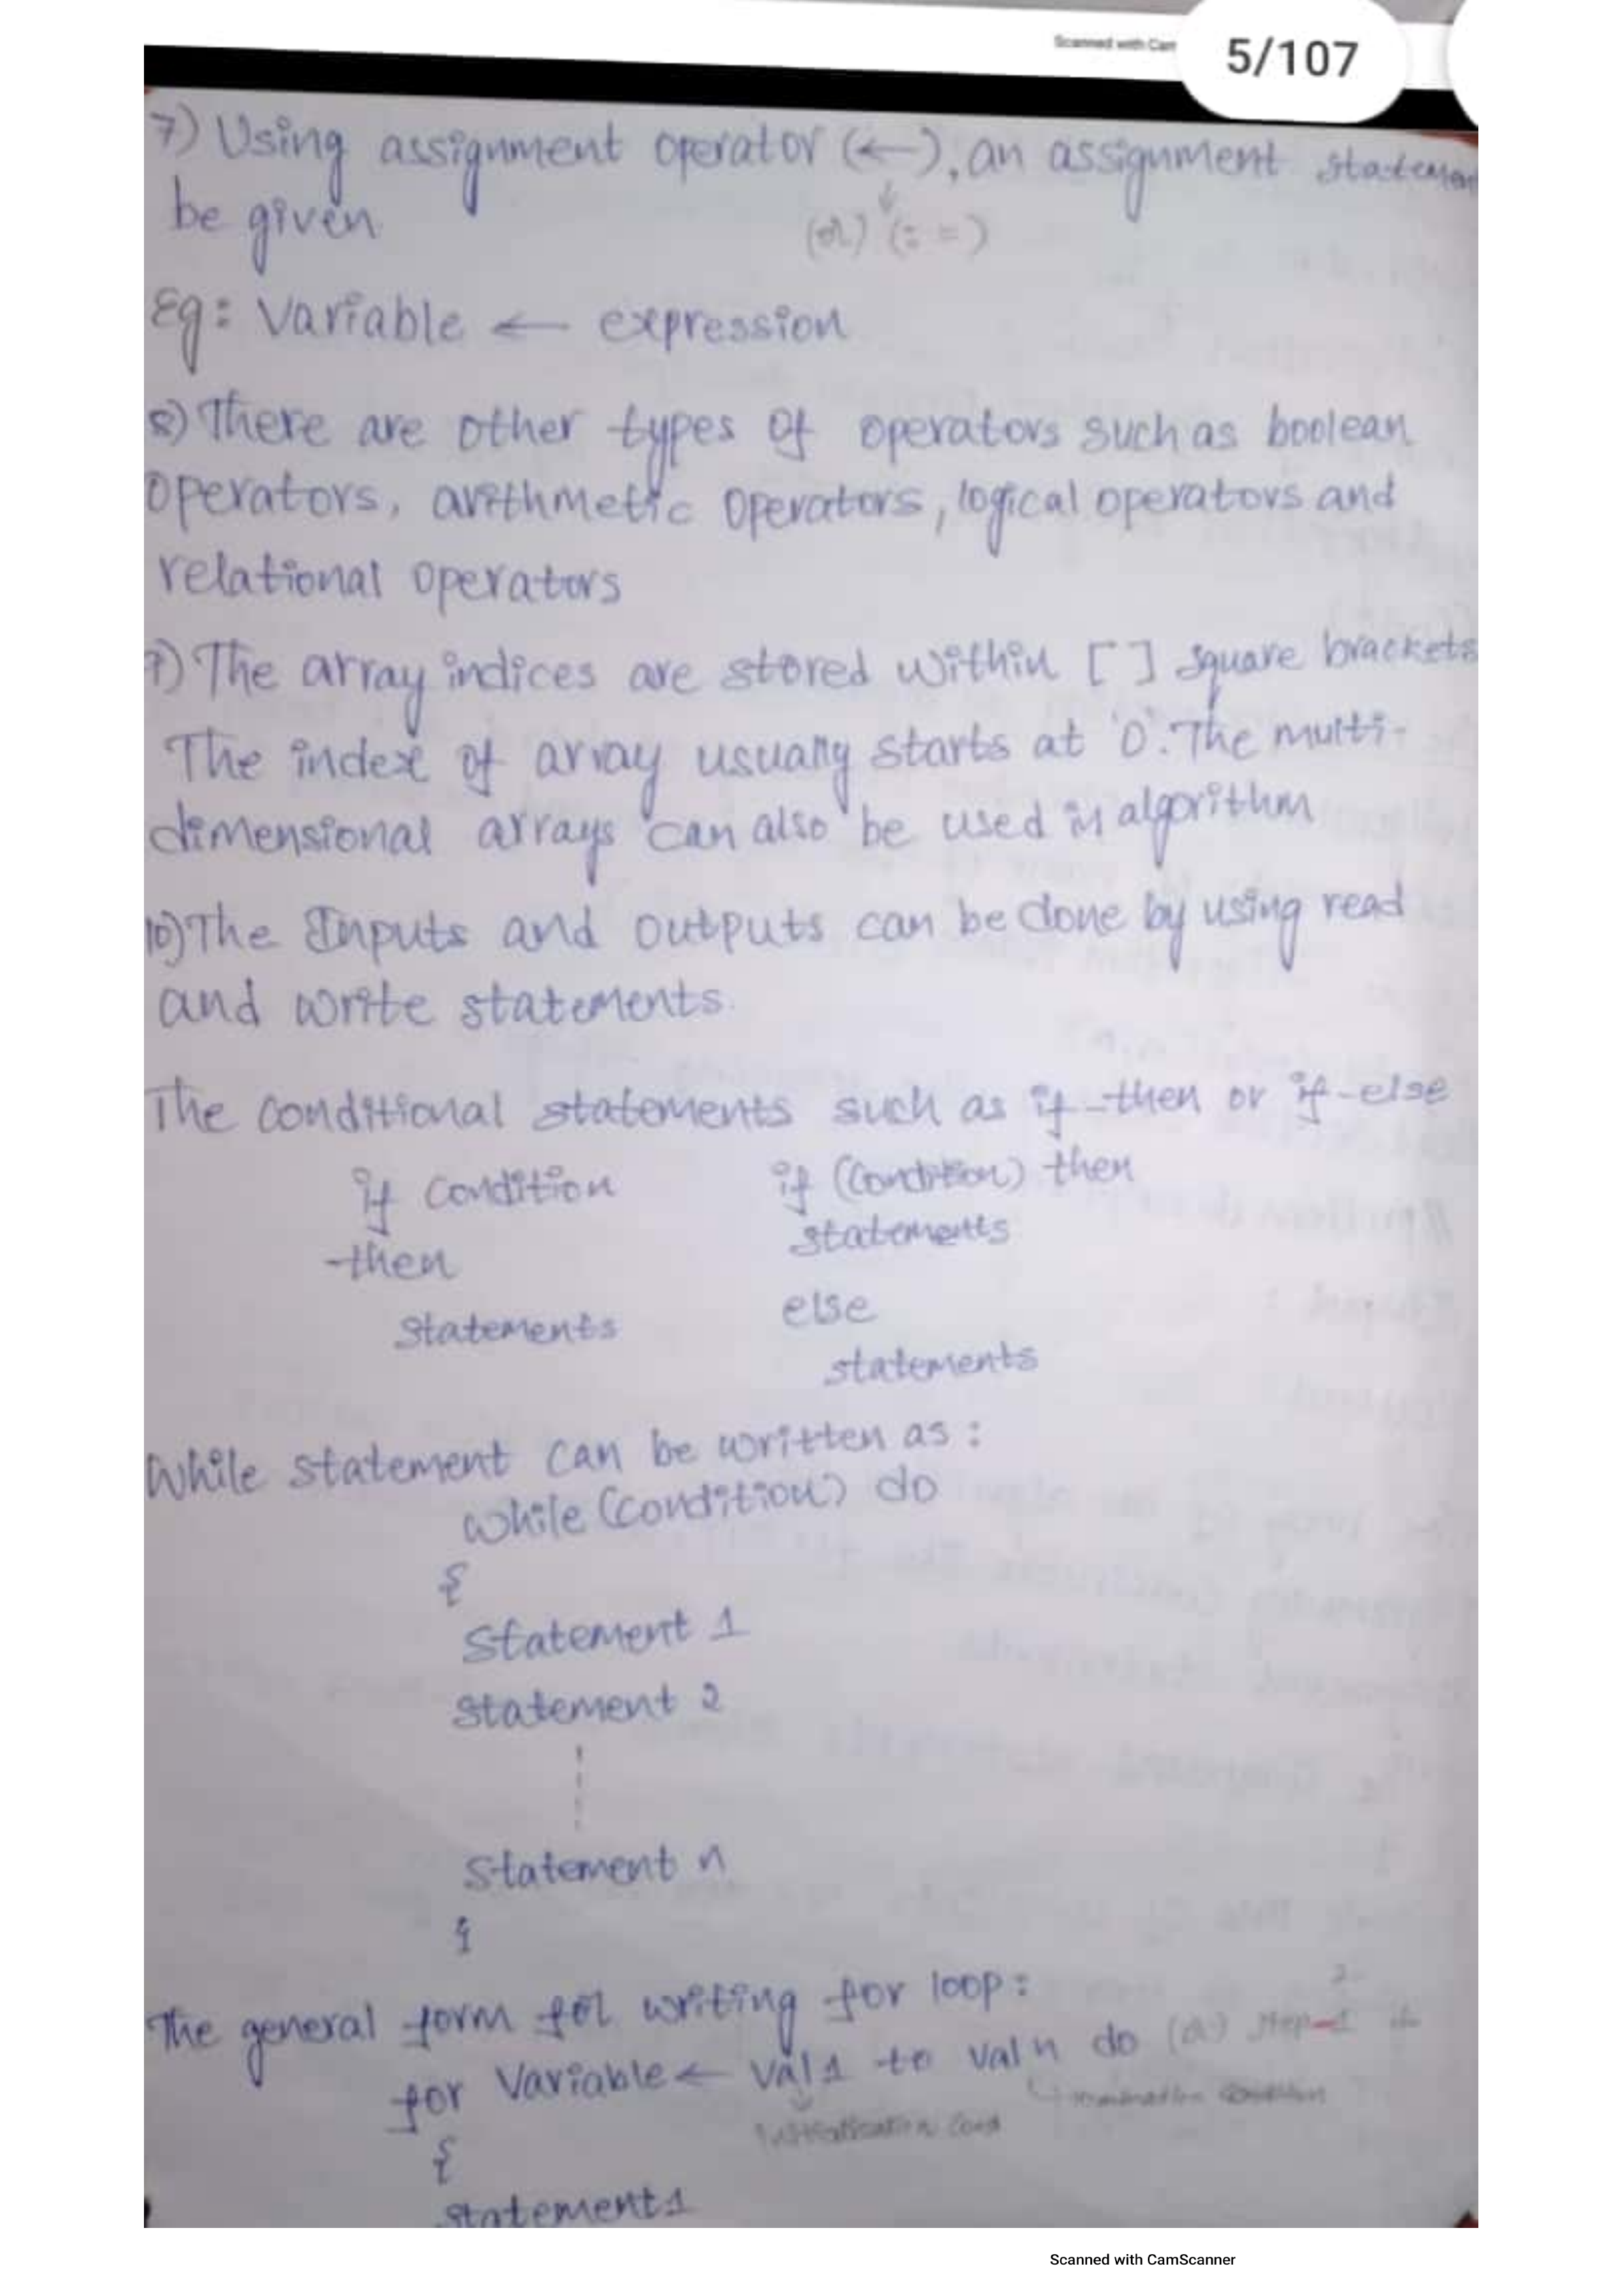 Scanned with Cam
5/107
7) Using assignment operator (←), an assignment statemen
be given
(or) (:=)
Eg: Variable ← expression
8) There are other types of operators such as boolean
operators, arithmetic operators, logical operators and
relational operators
9) The array indices are stored within [ ] square brackets
The index of array usually starts at '0'. The multi-
dimensional arrays can also be used in algorithm
10) The Inputs and outputs can be done by using read
and write statements.
The conditional statements such as if-then or if-else
if condition
then
statements
if (condition) then
statements
else
statements
While statement can be written as :
while (condition) do
{
statement 1
statement 2
statement n
}
The general form for writing for loop :
for Variable ← val1 to valn do (or) step-1
Initialisation cond
termination condition
{
statement1
Scanned with CamScanner